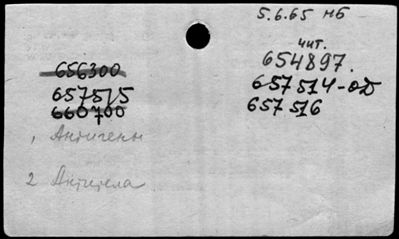 5.6.65 мб
чит.
654897.
657514-од
657516
656300
657515
660700
1 Антигены
2 Антитела